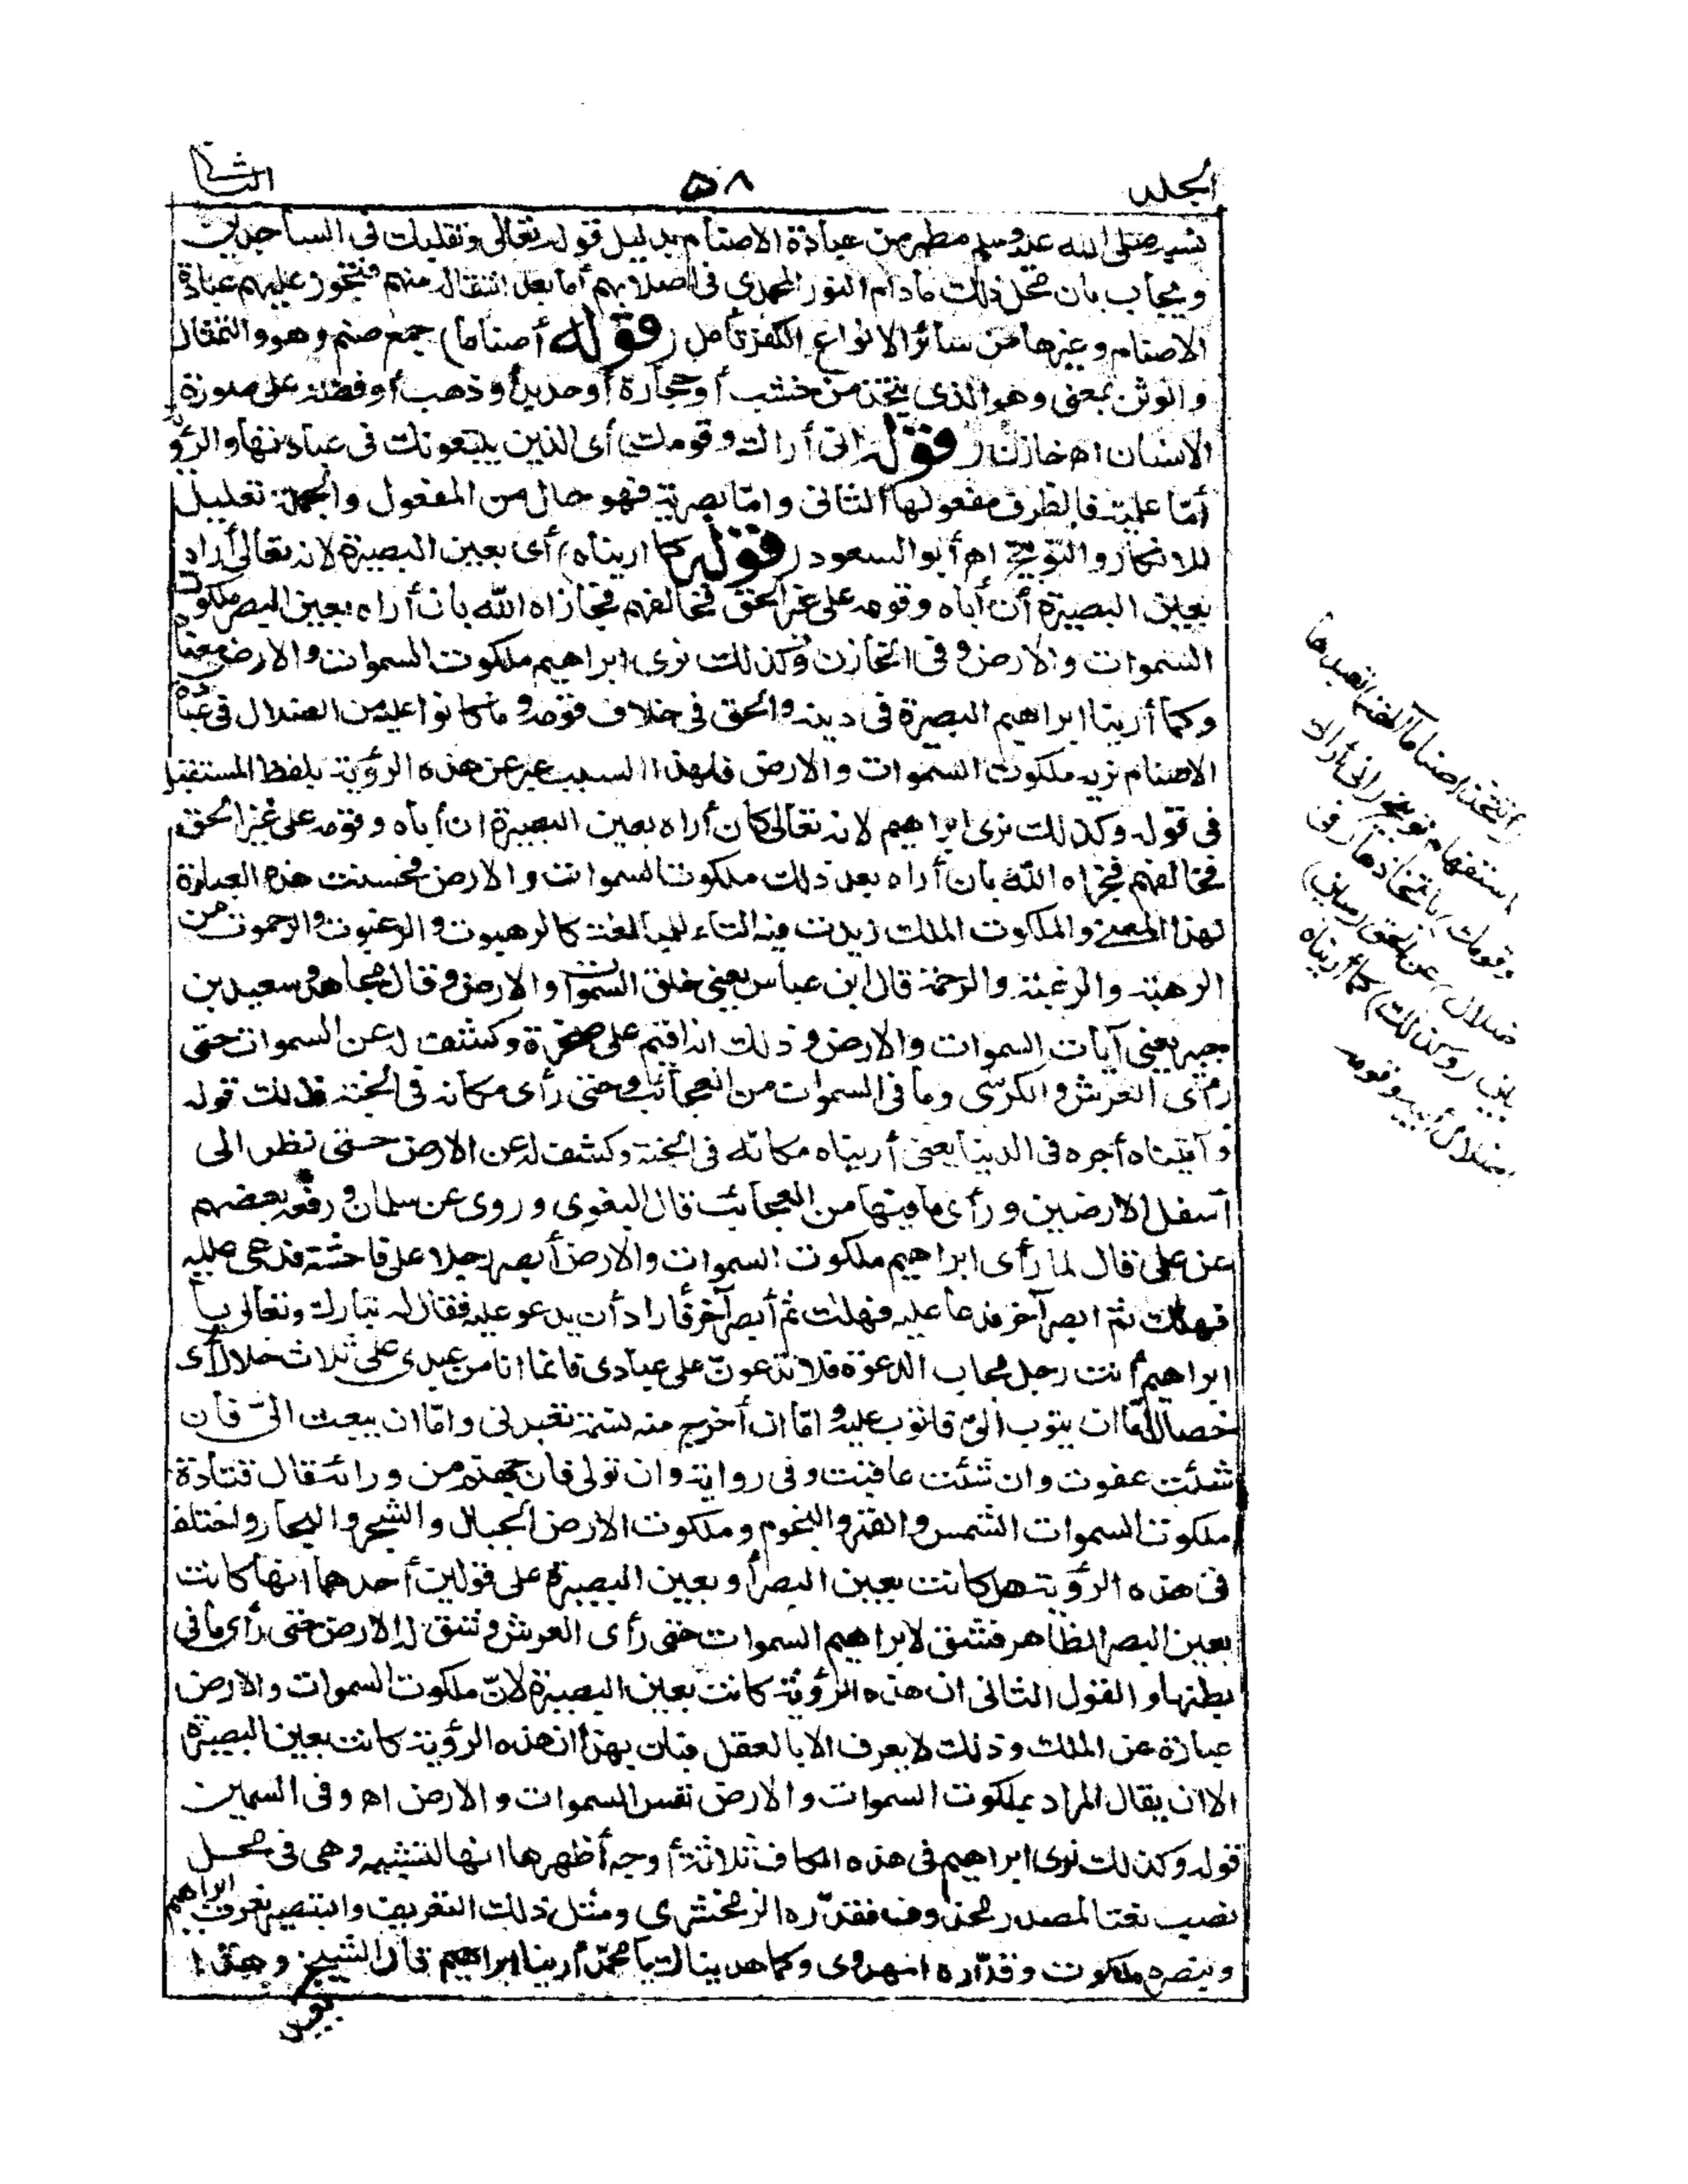 الجلد
٥٨
الثانى
نسبه صلى الله عليه وسلم مطهر من عبادة الاصنام بدليل قوله تعالى وتقلبك فى الساجدين
ويجاب بان محل ذلك مادام النور المحمدى فى اصلابهم أما بعد انتقاله منهم فتجوز عليهم عبادة
الاصنام وغيرها من سائر الانواع الكفر تأمل (قوله أصناما) جمع صنم وهو والتمثال
والوثن بمعنى وهو الذى يتخذ من خشب أو حجارة أو حديد أو ذهب أو فضة على صورة
الانسان اه خازن (قوله انى أراك وقومك) أى الذين يتبعونك فى عبادتها والرؤية
أمّا علمية فالظرف مفعولها الثانى وامّا بصرية فهو حال من المفعول والجملة تعليل
للانكار والتوبيخ اه أبو السعود (قوله كما اريناه) أى بعين البصيرة لانه تعالى أراه
بعين البصيرة أن أباه وقومه على غير الحق فخالفهم فجازاه الله بان أراه بعين البصر ملكوت
السموات والارض وفى الخازن وكذلك نرى ابراهيم ملكوت السموات والارض معناه
وكما أرينا ابراهيم البصيرة فى دينه والحق فى خلاف قومه وما كانوا عليه من الضلال فى عبادة
الاصنام نريه ملكوت السموات والارض فلهذا السبب عبر عن هذه الرؤية بلفظ المستقبل
فى قوله وكذلك نرى ابراهيم لانه تعالى كان أراه بعين البصيرة ان أباه وقومه على غير الحق
فخالفهم فجزاه الله بان أراه بعد ذلك ملكوت السموات والارض فحسنت هذه العبارة
لهذا المعنى والملكوت الملك زيدت فيه التاء للمبالغة كالرهبوت والرغبوت والرحموت من
الرهبة والرغبة والرحمة قال ابن عباس يعنى خلق السموات والارض وقال مجاهد وسعيد بن
جبير يعنى آيات السموات والارض وذلك انه اقيم على صخرة وكشف له عن السموات حتى
رأى العرش والكرسى وما فى السموات من العجائب وحتى رأى مكانه فى الجنة فذلك قوله
وآتيناه أجره فى الدنيا يعنى أريناه مكانه فى الجنة وكشف له عن الارض حتى نظر الى
أسفل الارضين ورأى ما فيها من العجائب قال البغوى وروى عن سلمان ورفعه بعضهم
عن على قال لما رأى ابراهيم ملكوت السموات والارض أبصر رجلا على فاحشة فدعى عليه
فهلك ثم ابصر آخر فدعا عليه فهلك ثم أبصر آخر فأراد أن يدعو عليه فقال له تبارك وتعالى يا
ابراهيم أنت رجل مجاب الدعوة فلا تدعون على عبادى فانما انا من عبدى على ثلاث خلال أى
خصال امّا ان يتوب الىّ فاتوب عليه وامّا ان أخرج منه نسمة تعبدنى وامّا ان يبعث الىّ فان
شئت عفوت وان شئت عاقبت وفى رواية وان تولى فان جهنم من ورائه قال قتادة
ملكوت السموات الشمس والقمر والنجوم وملكوت الارض الجبال والشجر والبحار واختلف
فى هذه الرؤية هل كانت بعين البصر أو بعين البصيرة على قولين أحدهما انها كانت
بعين البصر الظاهر فشق لابراهيم السموات حتى رأى العرش وشق له الارض حتى رأى ما فى
بطنها والقول الثانى ان هذه الرؤية كانت بعين البصيرة لانّ ملكوت السموات والارض
عبارة عن الملك وذلك لا يعرف الا بالعقل فبان بهذا ان هذه الرؤية كانت بعين البصيرة
الا ان يقال المراد بملكوت السموات والارض نفس السموات والارض اه وفى السمين
قوله وكذلك نرى ابراهيم فى هذه الكاف ثلاثة أوجه أظهرها انها للتشبيه وهى فى محل
نصب نعتا لمصدر محذوف فقدّره الزمخشرى ومثل ذلك التعريف والتبصير نعرف ابراهيم
ونبصره ملكوت وقدّره المهدوى وكما هديناك يا محمّد أرينا ابراهيم قال الشيخ وهذا
بعيد
(أتتخذ أصناما آلهة) تعبدها
استفهام توبيخ (انى أراك
وقومك) باتخاذها (فى
ضلال) عن الحق (مبين)
بين (وكذلك) كما أريناه
ضلال أبيه وقومه